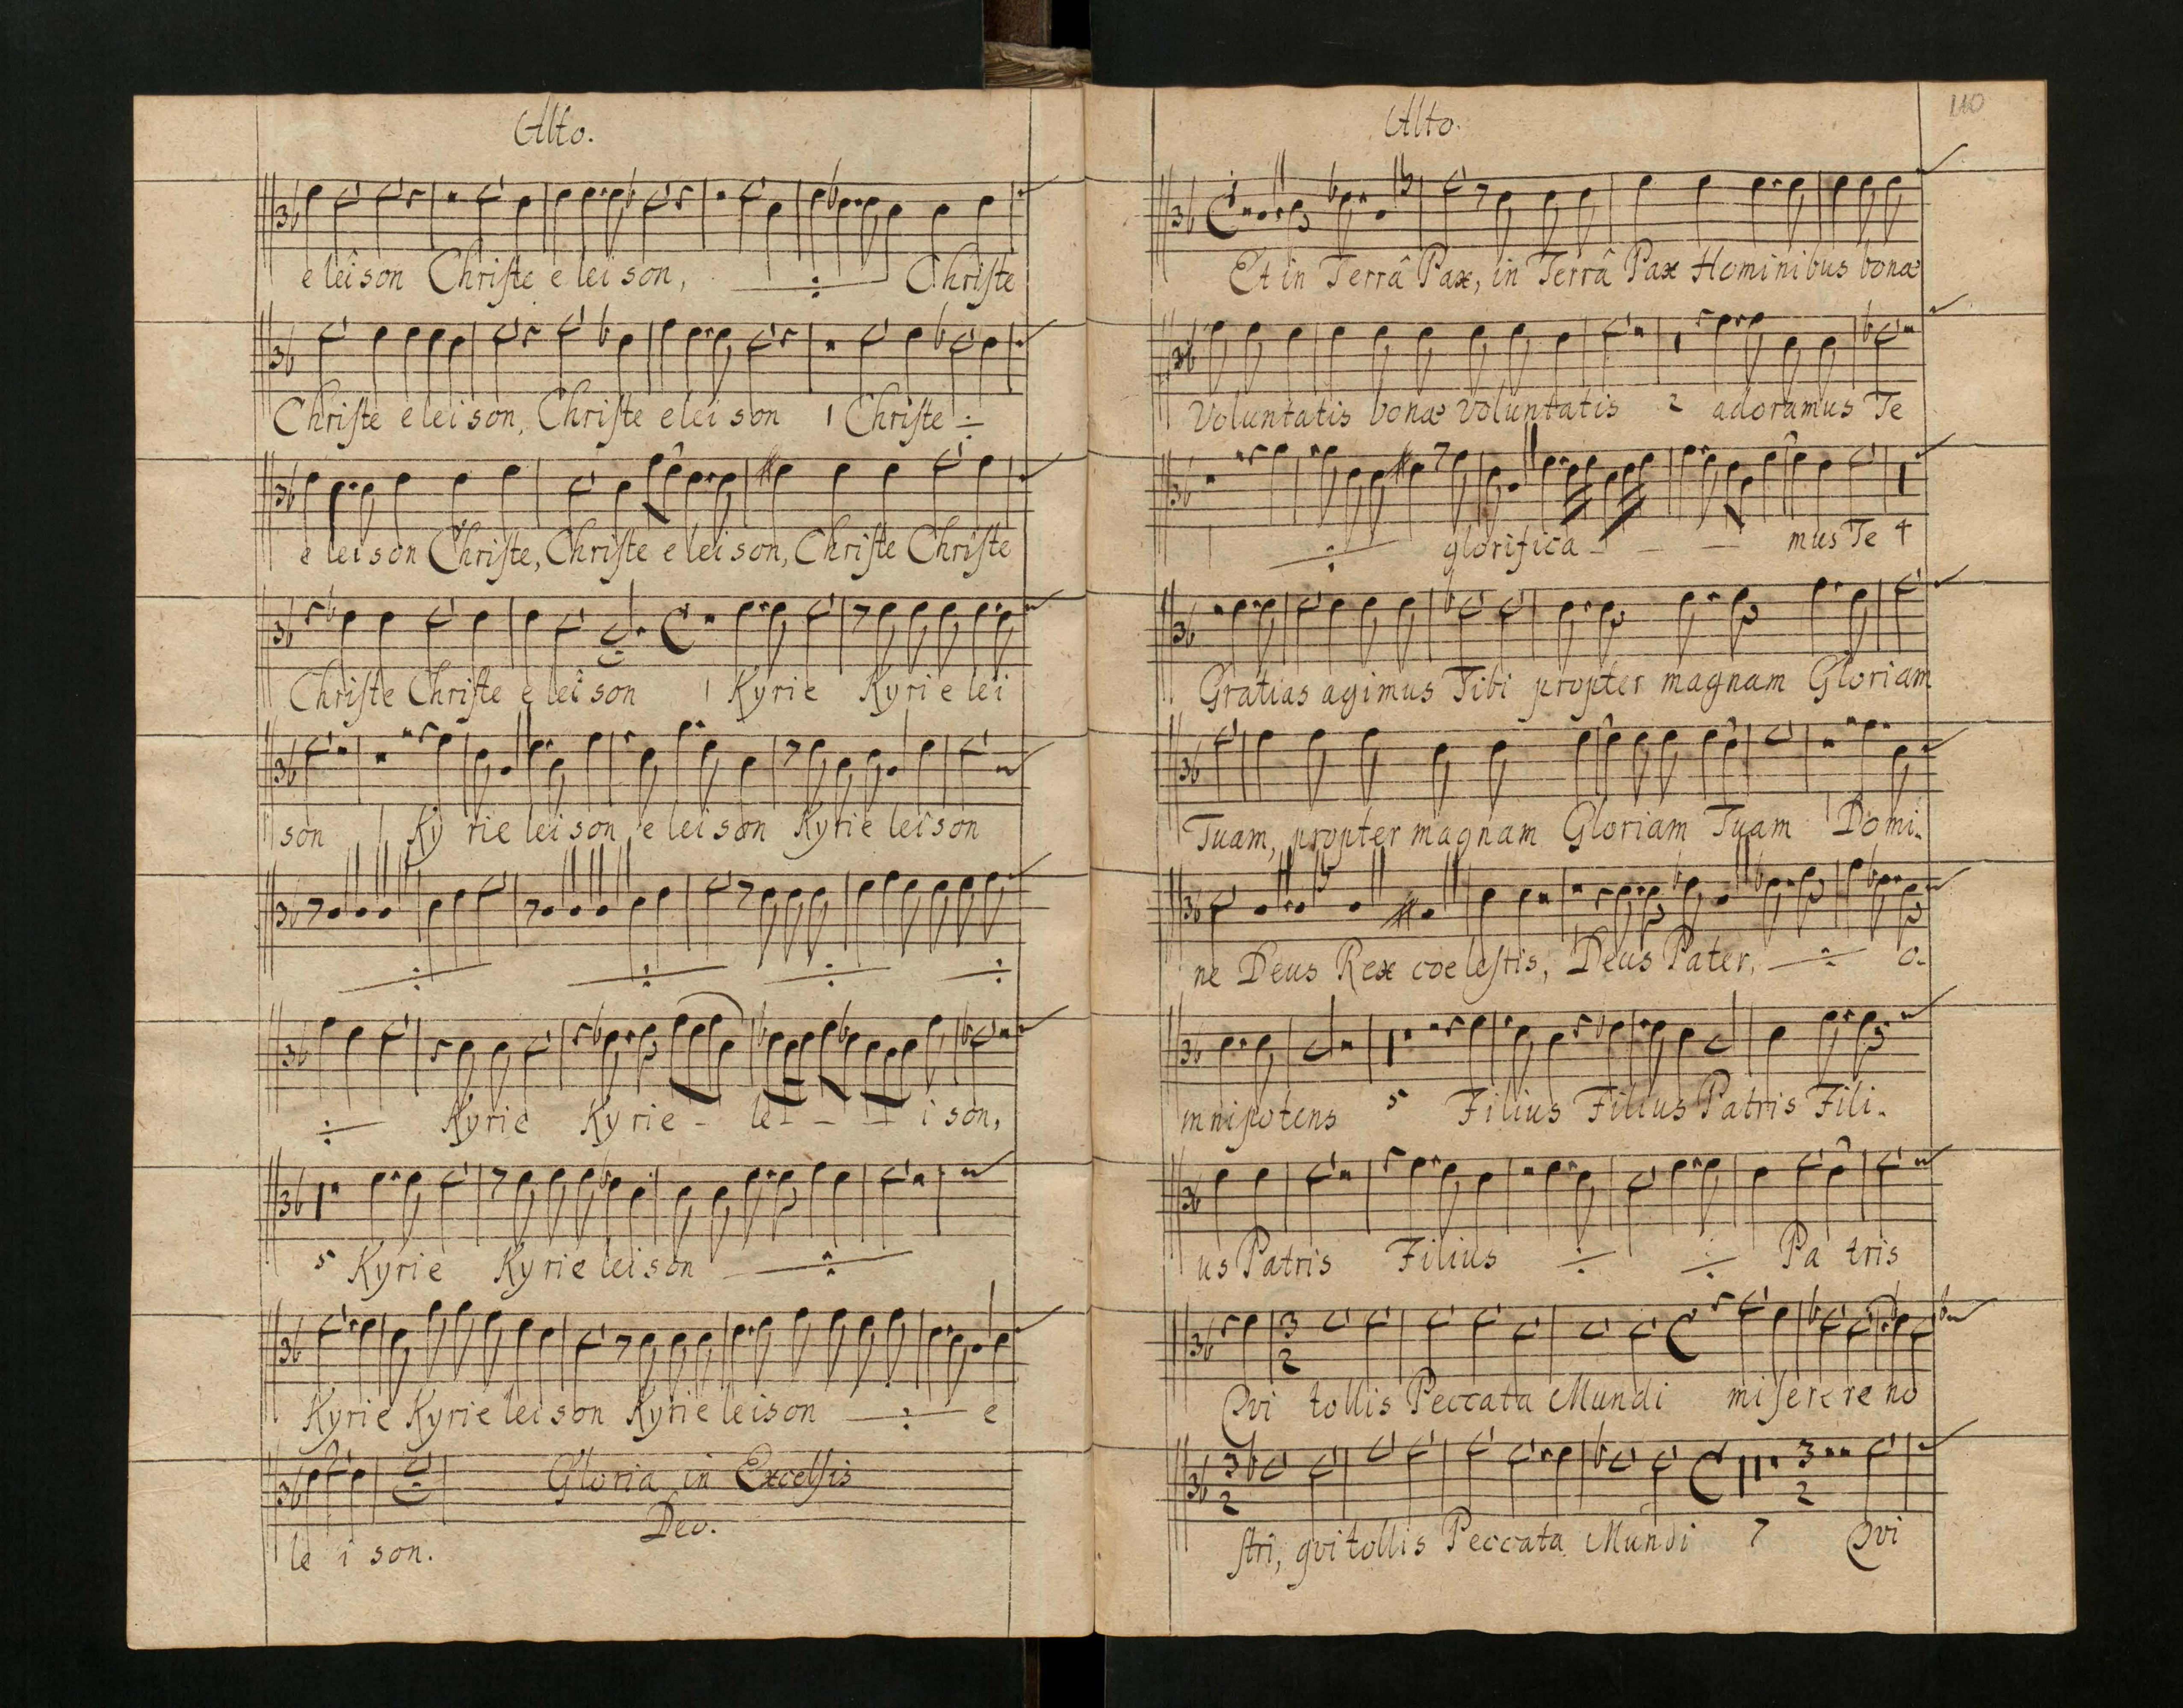 Alto.
e leison Christe e lei son, ÷ Christe
Christe e lei son, Christe e lei son 1 Christe ÷
e lei son Christe, Christe e lei son, Christe Christe
Christe Christe e lei son 1 Kyrie Kyri e lei
son 1 Ky rie lei son, e lei son Kyrie lei son
÷ ÷ ÷ ÷
÷ Kyrie Ky rie - le - - - i son,
5 Kyrie Kyrie lei son ÷
Kyrie Kyrie lei son Kyrie leison ÷ e
Gloria in Excelsis
Deo.
le i son.
110
Alto.
Et in Terrâ Pax, in Terrâ Pax Hominibus bonæ
Voluntatis bonæ Voluntatis 2 adoramus Te
÷ glorifica - - - mus Te 4
Gratias agimus Tibi propter magnam Gloriam
Tuam, propter magnam Gloriam Tuam 1 Domi-
ne Deus Rex coelestis, Deus Pater, ÷ o-
mnipotens 5 Filius Filius Patris Fili-
us Patris Filius ÷ ÷ Pa tris
3
2
Qvi tollis Peccata Mundi miserere no
3
2
3
2
stri, qvi tollis Peccata Mundi 7 Qvi